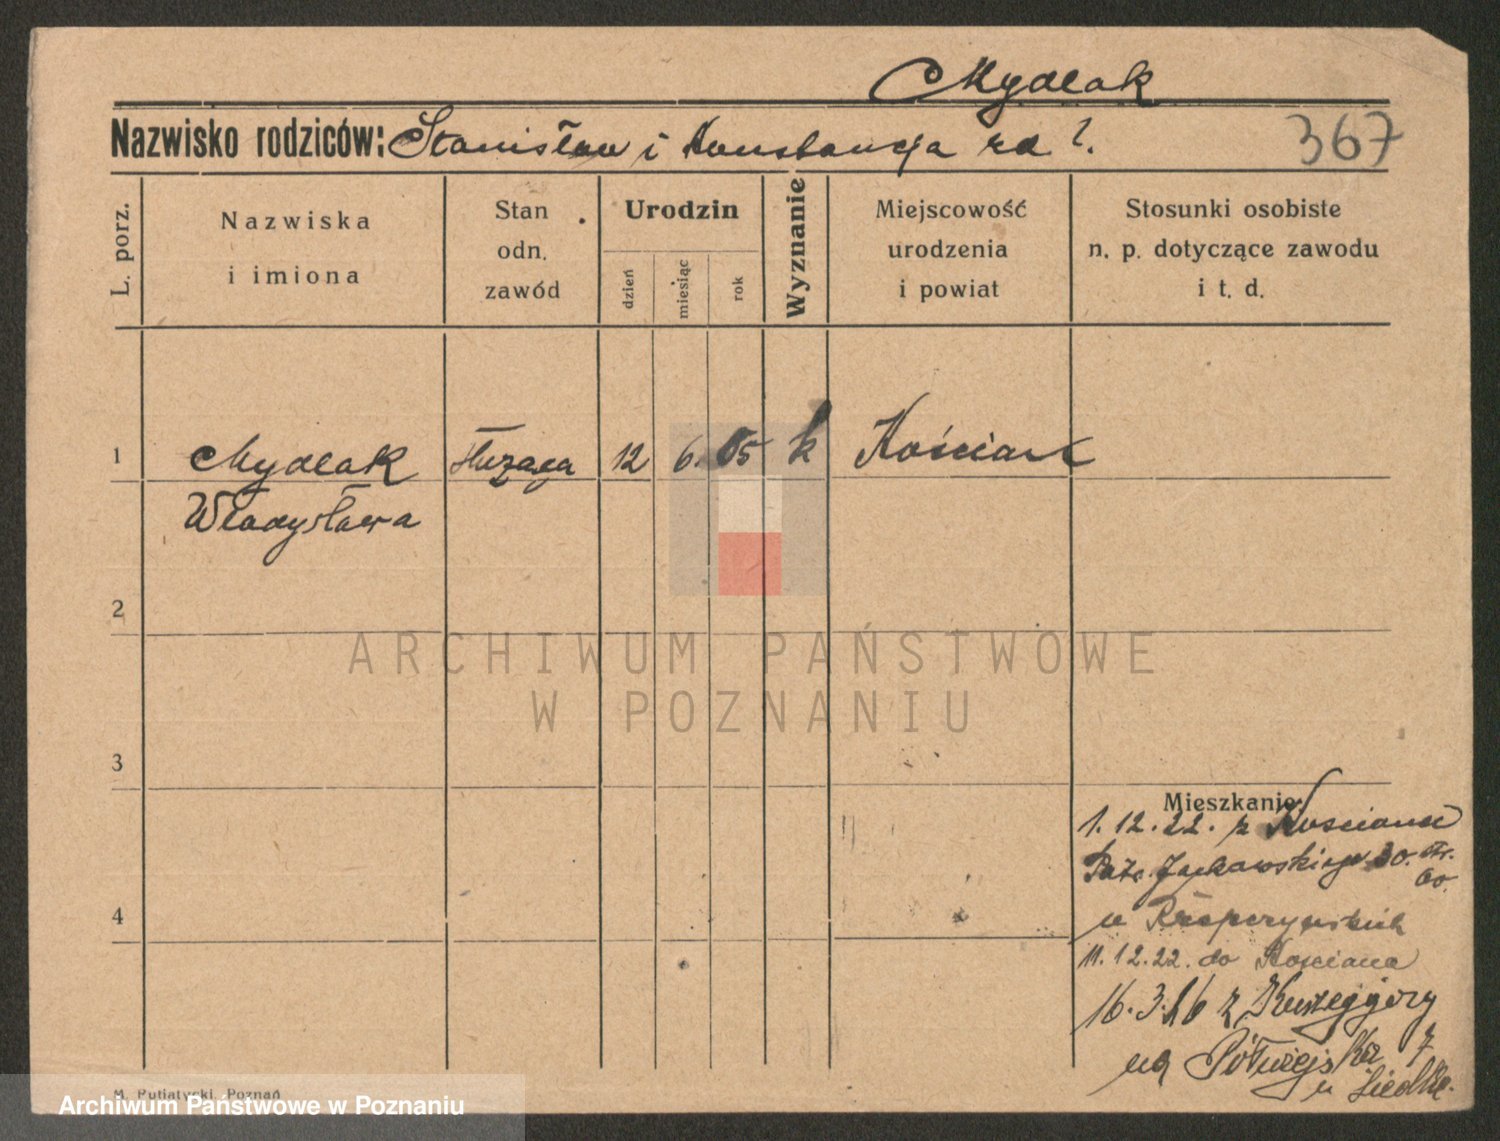 Mydlak
Nazwisko rodziców: Stanisław i Konstancja zd ?.
367
L. porz.
Nazwiska
i imiona
Stan
odn.
zawód
Urodzin
dzień
miesiąc
rok
Wyznanie
Miejscowość
urodzenia
i powiat
Stosunki osobiste
n. p. dotyczące zawodu
i t. d.
1
Mydlak
Władysława
służąca
12
6.
05
k
Kościan
2
3
4
Mieszkanie:
1.12.22. z Kościana
Patr. Jackowskiego 30.
u
11.12.22. do Kościana
16.3.26 z
na Półwiejska 7
u
M. Putiatycki, Poznań
ARCHIWUM PAŃSTWOWE
W POZNANIU
Archiwum Państwowe w Poznaniu